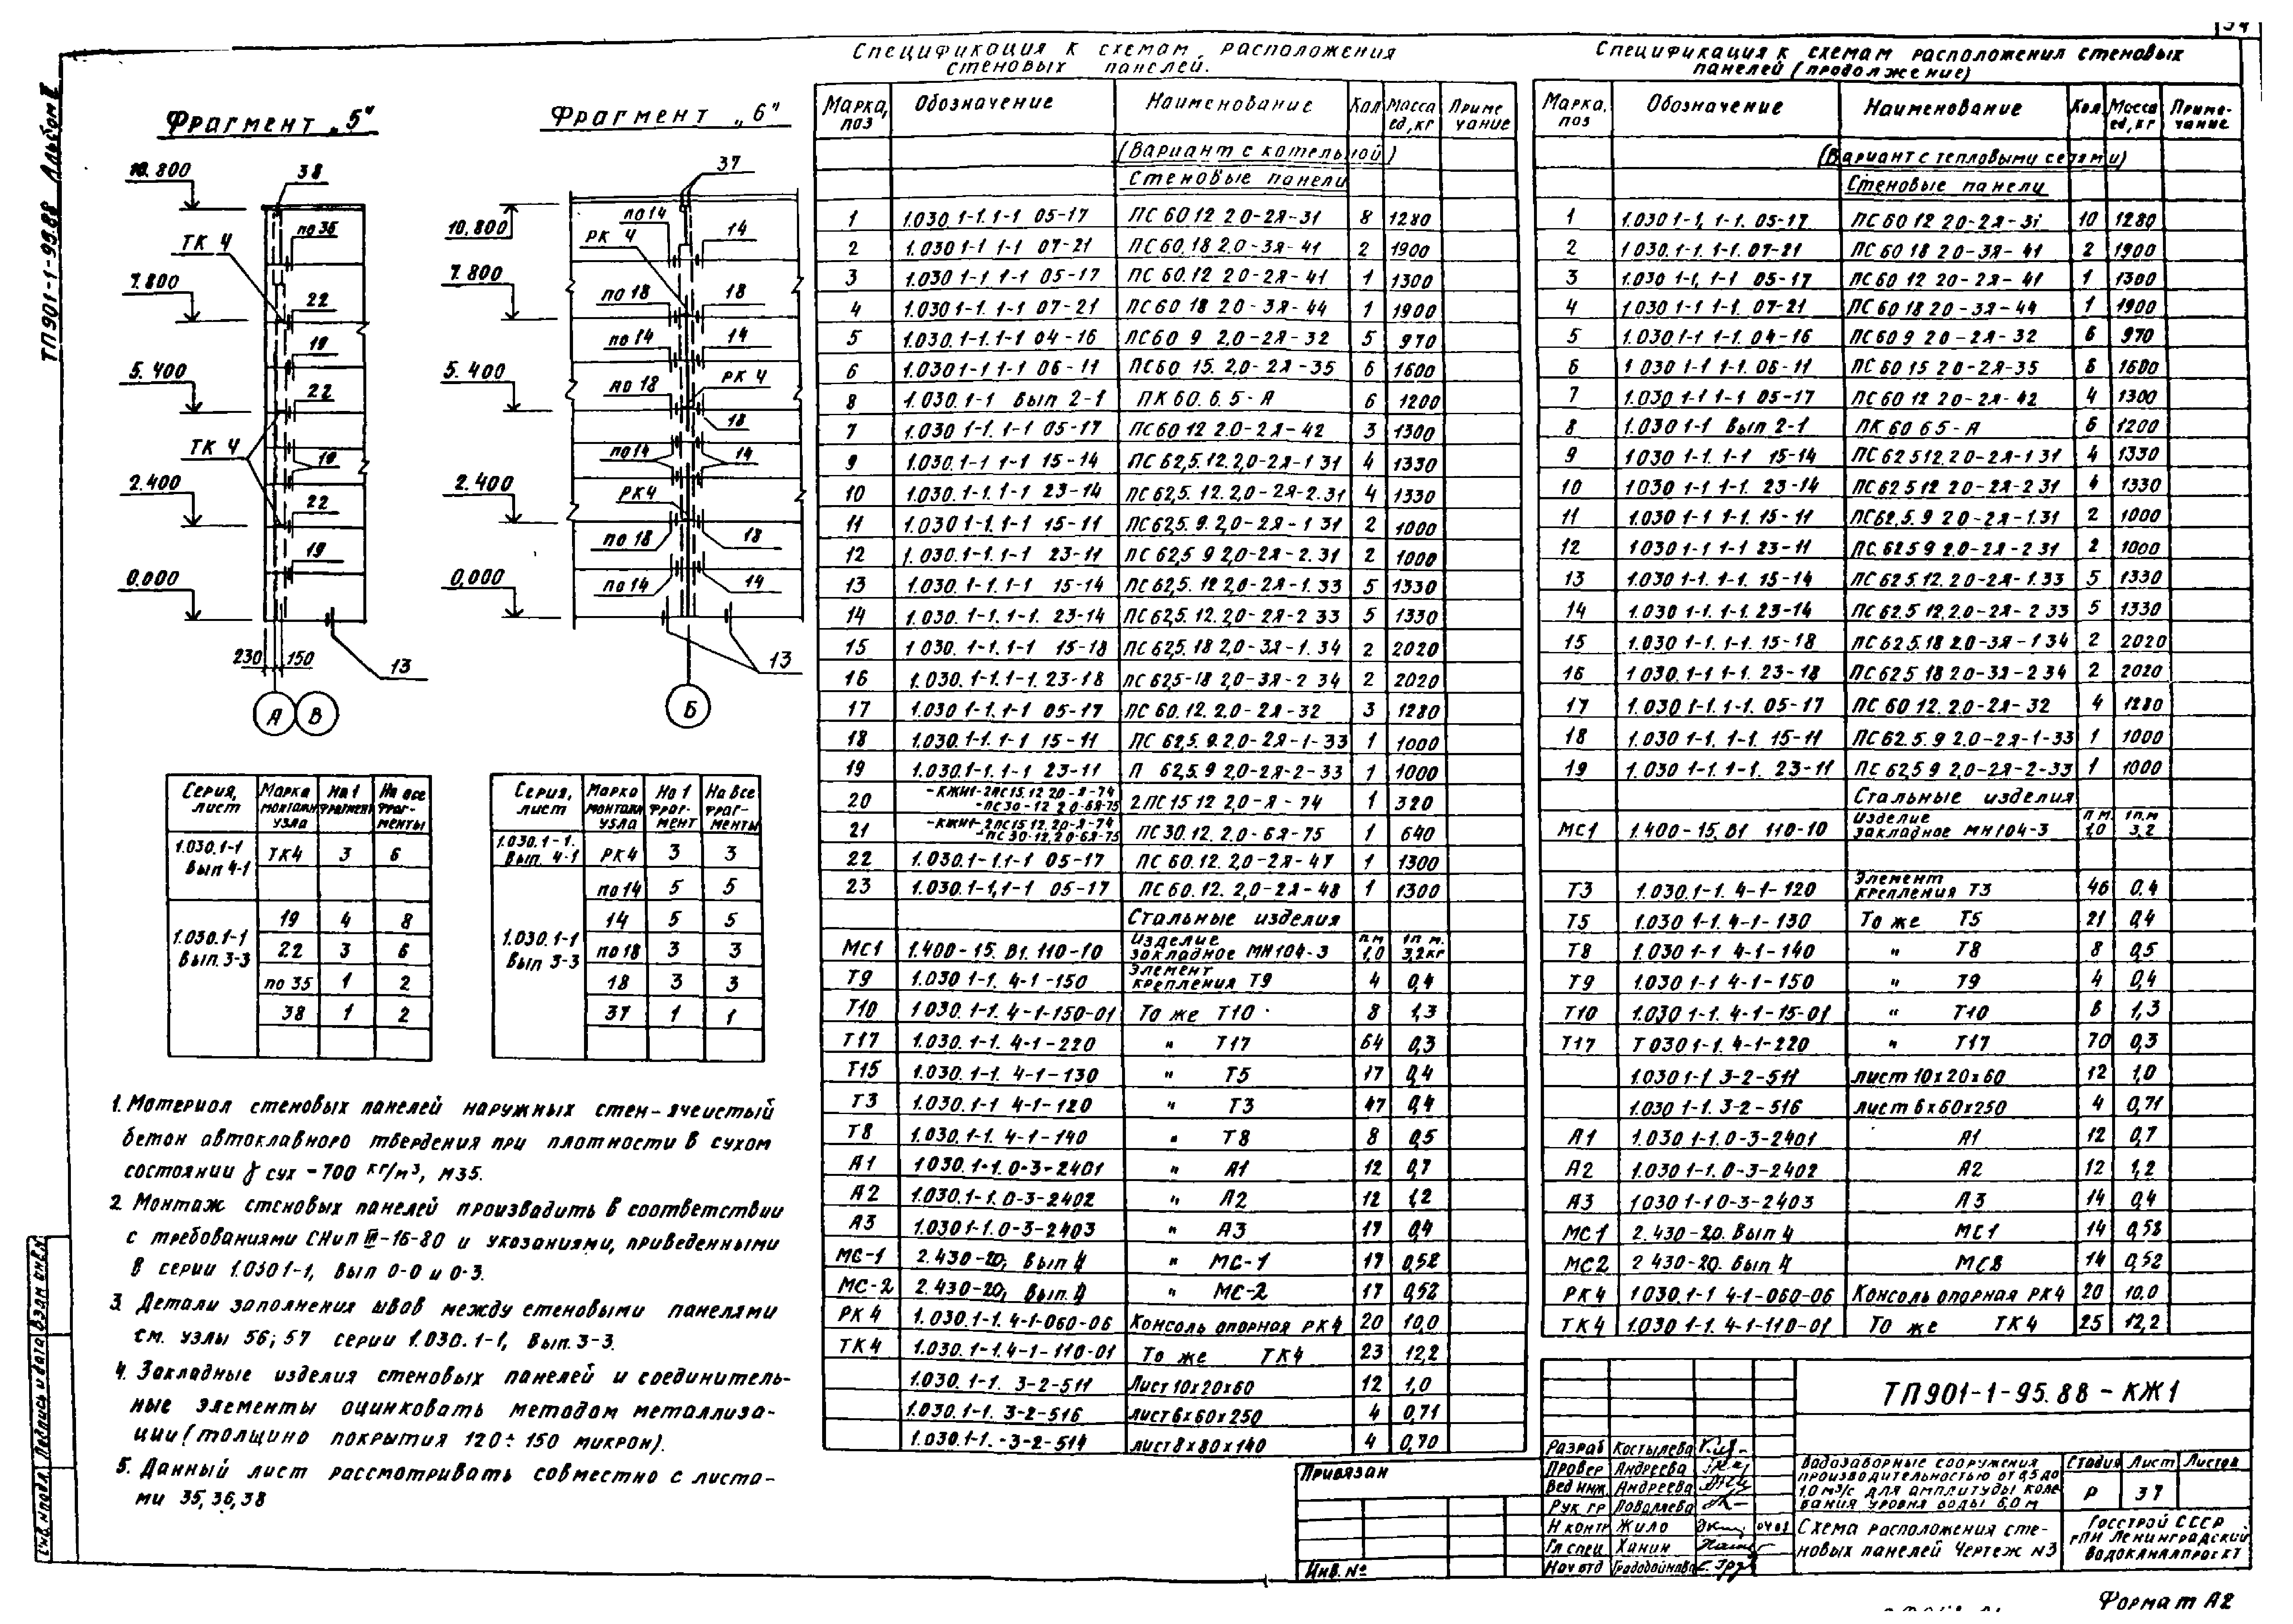 ТП901-1-95.88 Альбом II
Фрагмент „5"
10.800
38
ТК 4
по 35
7.800
22
19
5.400
22
ТК 4
19
2.400
22
19
0.000
230 150
13
А В
Фрагмент „6"
37
по14
РК 4
14
10.800
7.800
по 18
18
по 14
14
5.400
по 18
РК 4
18
по14
14
2.400
РК4
по 18
18
0.000
по14
14
13
Б
Серия, лист Марка монтажн узла На 1 фрагмент На все фрагменты
1.030.1-1 Вып 4-1 ТК4 3 6
1.030.1-1 Вып. 3-3 19 4 8
22 3 6
по 35 1 2
38 1 2
Серия, лист Марка монтажн узла На 1 фрагмент На все фрагменты
1.030.1-1. Вып. 4-1 РК4 3 3
1.030.1-1 Вып 3-3 по14 5 5
14 5 5
по18 3 3
18 3 3
37 1 1
1. Материал стеновых панелей наружных стен-ячеистый
бетон автоклавного твердения при плотности в сухом
состоянии γ сух = 700 кг/м³, М35.
2. Монтаж стеновых панелей производить в соответствии
с требованиями СНиП III-16-80 и указаниями, приведенными
в серии 1.030 1-1, вып 0-0 и 0-3.
3. Детали заполнения швов между стеновыми панелями
см. узлы 56; 57 серии 1.030.1-1, Вып. 3-3.
4. Закладные изделия стеновых панелей и соединитель-
ные элементы оцинковать методом металлиза-
ции (толщина покрытия 120÷150 микрон).
5. Данный лист рассматривать совместно с листа-
ми 35, 36, 38
Спецификация к схемам расположения
стеновых панелей.
Марка, поз Обозначение Наименование Кол Масса ед, кг Примечание
(Вариант с котельной)
Стеновые панели
1 1.030 1-1. 1-1 05-17 ПС 60 12 2.0-2Я-31 8 1280
2 1.030 1-1 1-1 07-21 ПС 60.18 2.0-3Я-41 2 1900
3 1.030 1-1 1-1 05-17 ПС 60.12 2.0-2Я-41 1 1300
4 1.030 1-1. 1-1 07-21 ПС 60 18 2.0-3Я-44 1 1900
5 1.030. 1-1. 1-1 04-16 ПС60 9 2,0-2Я-32 5 970
6 1.030 1-1 1-1 06-11 ПС60 15. 2,0-2Я-35 6 1600
8 1.030. 1-1 Вып 2-1 ПК 60. 6. 5-А 6 1200
7 1.030 1-1. 1-1 05-17 ПС60 12 2.0-2Я-42 3 1300
9 1.030. 1-1 1-1 15-14 ПС 62,5. 12. 2,0-2Я-1 31 4 1330
10 1.030. 1-1. 1-1 23-14 ПС 62,5. 12. 2,0-2Я-2.31 4 1330
11 1.030. 1-1. 1-1 15-11 ПС62,5. 9. 2,0-2Я-1 31 2 1000
12 1.030. 1-1. 1-1 23-11 ПС 62,5 9 2,0-2Я-2.31 2 1000
13 1.030. 1-1. 1-1 15-14 ПС 62,5. 12 2,0-2Я-1. 33 5 1330
14 1.030. 1-1. 1-1. 23-14 ПС 62,5. 12. 2,0-2Я-2 33 5 1330
15 1 030. 1-1. 1-1 15-18 ПС 62,5. 18 2,0-3Я-1. 34 2 2020
16 1.030. 1-1. 1-1. 23-18 ПС 62,5-18 2,0-3Я-2 34 2 2020
17 1.030 1-1. 1-1 05-17 ПС 60. 12. 2,0-2Я-32 3 1280
18 1.030. 1-1. 1-1 15-11 ПС 62,5. 9. 2,0-2Я-1-33 1 1000
19 1.030. 1-1. 1-1 23-11 П 62,5. 9 2,0-2Я-2-33 1 1000
20 -КЖИ-2ПС15.12 20-Я-74 -ПС30-12 2.0-6Я-75 2ПС 15 12 2,0-Я-74 1 320
21 -КЖИ-2ПС15.12.20-Я-74 -ПС30-12,2.0-6Я-75 ПС 30. 12. 2.0-6Я-75 1 640
22 1.030. 1-1. 1-1 05-17 ПС 60. 12. 2,0-2Я-47 1 1300
23 1.030. 1-1, 1-1 05-17 ПС 60. 12. 2,0-2Я-48 1 1300
Стальные изделия
МС1 1.400-15. В1. 110-10 Изделие закладное МН104-3 п м 1,0 1п м. 3,2кг
Т9 1.030 1-1. 4-1-150 Элемент крепления Т9 4 0,4
Т10 1 030. 1-1. 4-1-150-01 То же Т10 8 1,3
Т17 1.030. 1-1. 4-1-220 " Т17 64 0,3
Т15 1.030. 1-1. 4-1-130 " Т5 17 0,4
Т3 1.030. 1-1 4-1-120 " Т3 47 0,4
Т8 1.030. 1-1. 4-1-140 " Т8 8 0,5
А1 1 030. 1-1. 0-3-2401 " А1 12 0,7
А2 1.030. 1-1. 0-3-2402 " А2 12 1,2
А3 1.030 1-1. 0-3-2403 " А3 17 0,4
МС-1 2. 430-20, Вып 4 " МС-1 17 0,52
МС-2 2. 430-20, Вып. 4 " МС-2 17 0,52
РК 4 1. 030. 1-1. 4-1-060-06 Консоль опорная РК4 20 10,0
ТК 4 1.030. 1-1. 4-1-110-01 То же ТК4 23 12,2
1.030. 1-1. 3-2-511 Лист 10х20х60 12 1,0
1.030. 1-1. 3-2-516 лист 6х60х250 4 0,71
1.030. 1-1. -3-2-514 лист 8х80х140 4 0,70
Спецификация к схемам расположения стеновых
панелей (продолжение)
Марка, поз Обозначение Наименование Кол Масса ед, кг Примечание
(Вариант с тепловыми сетями)
Стеновые панели
1 1.030 1-1, 1-1. 05-17 ПС 60 12 2.0-2Я-31 10 1280
2 1.030. 1-1. 1-1. 07-21 ПС 60 18 2.0-3Я-41 2 1900
3 1.030 1-1, 1-1 05-17 ПС 60 12 20-2Я-41 1 1300
4 1.030 1-1 1-1. 07-21 ПС 60 18 20-3Я-44 1 1900
5 1.030 1-1 1-1. 04-16 ПС 60 9 20-2Я-32 6 970
6 1 030 1-1 1-1. 06-11 ПС 60 15 2.0-2Я-35 6 1600
7 1.030 1-1 1-1 05-17 ПС 60 12 20-2Я-42 4 1300
8 1.030 1-1 Вып 2-1 ПК 60 6 5-А 6 1200
9 1 030 1-1. 1-1 15-14 ПС 62 5 12. 2.0-2Я-1 31 4 1330
10 1 030 1-1 1-1. 23-14 ПС 62 5 12 20-2Я-2 31 4 1330
11 1.030 1-1 1-1. 15-11 ПС62.5. 9 2.0-2Я-1.31 2 1000
12 1 030 1-1 1-1 23-11 ПС. 62 5 9 2.0-2Я-2 31 2 1000
13 1.030 1-1. 1-1. 15-14 ПС 62 5. 12. 2.0-2Я-1.33 5 1330
14 1.030 1-1. 1-1. 23-14 ПС 62.5 12. 2.0-2Я-2 33 5 1330
15 1.030 1-1. 1-1. 15-18 ПС 62 5. 18 2.0-3Я-1 34 2 2020
16 1 030. 1-1 1-1. 23-18 ПС 62 5 18 20-3Я-2 34 2 2020
17 1.030 1-1. 1-1. 05-17 ПС 60 12. 2.0-2Я-32 4 1280
18 1 030 1-1. 1-1. 15-11 ПС 62. 5. 9 2.0-2Я-1-33 1 1000
19 1.030 1-1. 1-1. 23-11 ПС 62,5 9 2,0-2Я-2-33 1 1000
Стальные изделия
МС1 1.400-15, В1 110-10 Изделие закладное МН104-3 п м 1,0 1п.м 3,2
Т3 1.030. 1-1. 4-1-120 Элемент крепления Т3 46 0.4
Т5 1.030 1-1. 4-1-130 То же Т5 21 0,4
Т8 1.030 1-1 4-1-140 " Т8 8 0,5
Т9 1.030 1-1 4-1-150 " Т9 4 0,4
Т10 1.030 1-1. 4-1-15-01 " Т10 8 1,3
Т17 Т 030 1-1. 4-1-220 " Т17 70 0,3
1.030 1-1 3-2-511 лист 10х20х60 12 1,0
1.030 1-1. 3-2-516 лист 6х60х250 4 0,71
А1 1.030 1-1. 0-3-2401 А1 12 0,7
А2 1.030 1-1. 0-3-2402 А2 12 1,2
А3 1 030 1-1 0-3-2403 А3 14 0,4
МС1 2. 430-20. Вып 4 МС1 14 0,52
МС2 2 430-20. Вып 4 МС2 14 0,52
РК4 1 030. 1-1 4-1-060-06 Консоль опорная РК4 20 10.0
ТК4 1.030 1-1. 4-1-110-01 То же ТК4 25 12,2
ТП901-1-95. 88-КЖ1
Разраб Костылева
Провер Андреева
Вед инж. Андреева
Рук гр
Н контр Жило
Гл спец Ханин
Нач отд
Водозаборные сооружения
производительностью от 0,5 до
1,0 м³/с для амплитуды коле-
бания уровня воды 6,0 м
Стадия Лист Листов
Р 37
Схема расположения сте-
новых панелей Чертеж N3
Госстрой СССР
ГПИ Ленинградский
Водоканалпроект
Привязан
Инв. №
Инв. № подл. Подпись и дата Взам инв. №
Формат А2